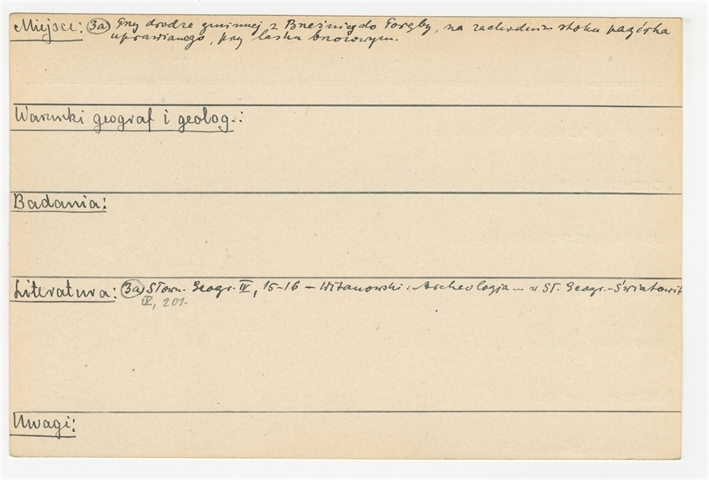 Miejsce: 3a) Przy drodze gminnej z Brzeźnicy do Poręby, na zachodnim stoku pagórka
uprawianego, przy lasku brzozowym.
Warunki geograf i geolog.:
Badania:
Literatura: 3a) Słown. Geogr. IV, 15-16 – Witanowski: Archeologja ... w Sł. Geogr. - Światowit
IV, 201.
Uwagi: